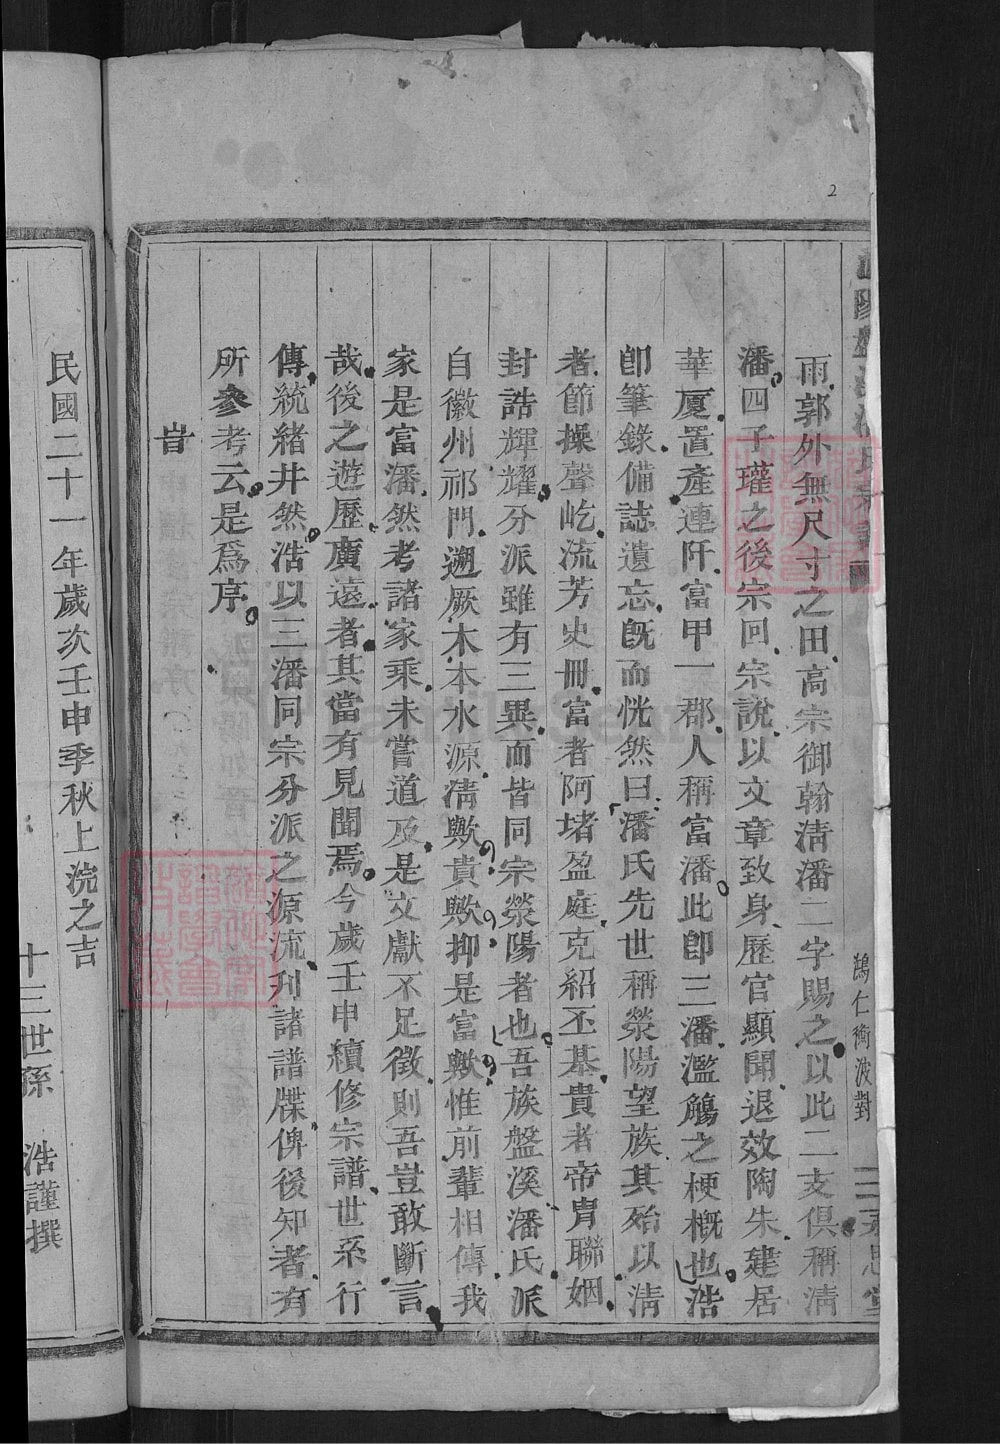 2
雨郭外無尺寸之田高宗御翰淸潘二字賜之以此二支俱稱淸
潘四子瓘之後宗回宗說以文章致身歷官顯聞退效陶朱建居
華厦置產連阡富甲一郡人稱富潘此卽三潘濫觴之梗槪也浩
卽筆錄備誌遺忘旣而恍然曰潘氏先世稱滎陽望族其始以淸
者節操聲屹流芳史冊富者阿堵盈庭克紹丕基貴者帝胄聯姻
封誥輝耀分派雖有三異而皆同宗滎陽者也吾族盤溪潘氏派
自徽州祁門遡厥木本水源淸歟貴歟抑是富歟惟前輩相傳我
家是富潘然考諸家乘未嘗道及是文獻不足徵則吾豈敢斷言
哉後之遊歷廣遠者其當有見聞焉今歲壬申續修宗譜世系行
傳統緒井然浩以三潘同宗分派之源流刋諸譜牒俾後知者有
所參考云是爲序
旹
民國二十一年歲次壬申季秋上浣之吉
十三世孫 浩謹撰
鵠仁衡波對
三 永思堂